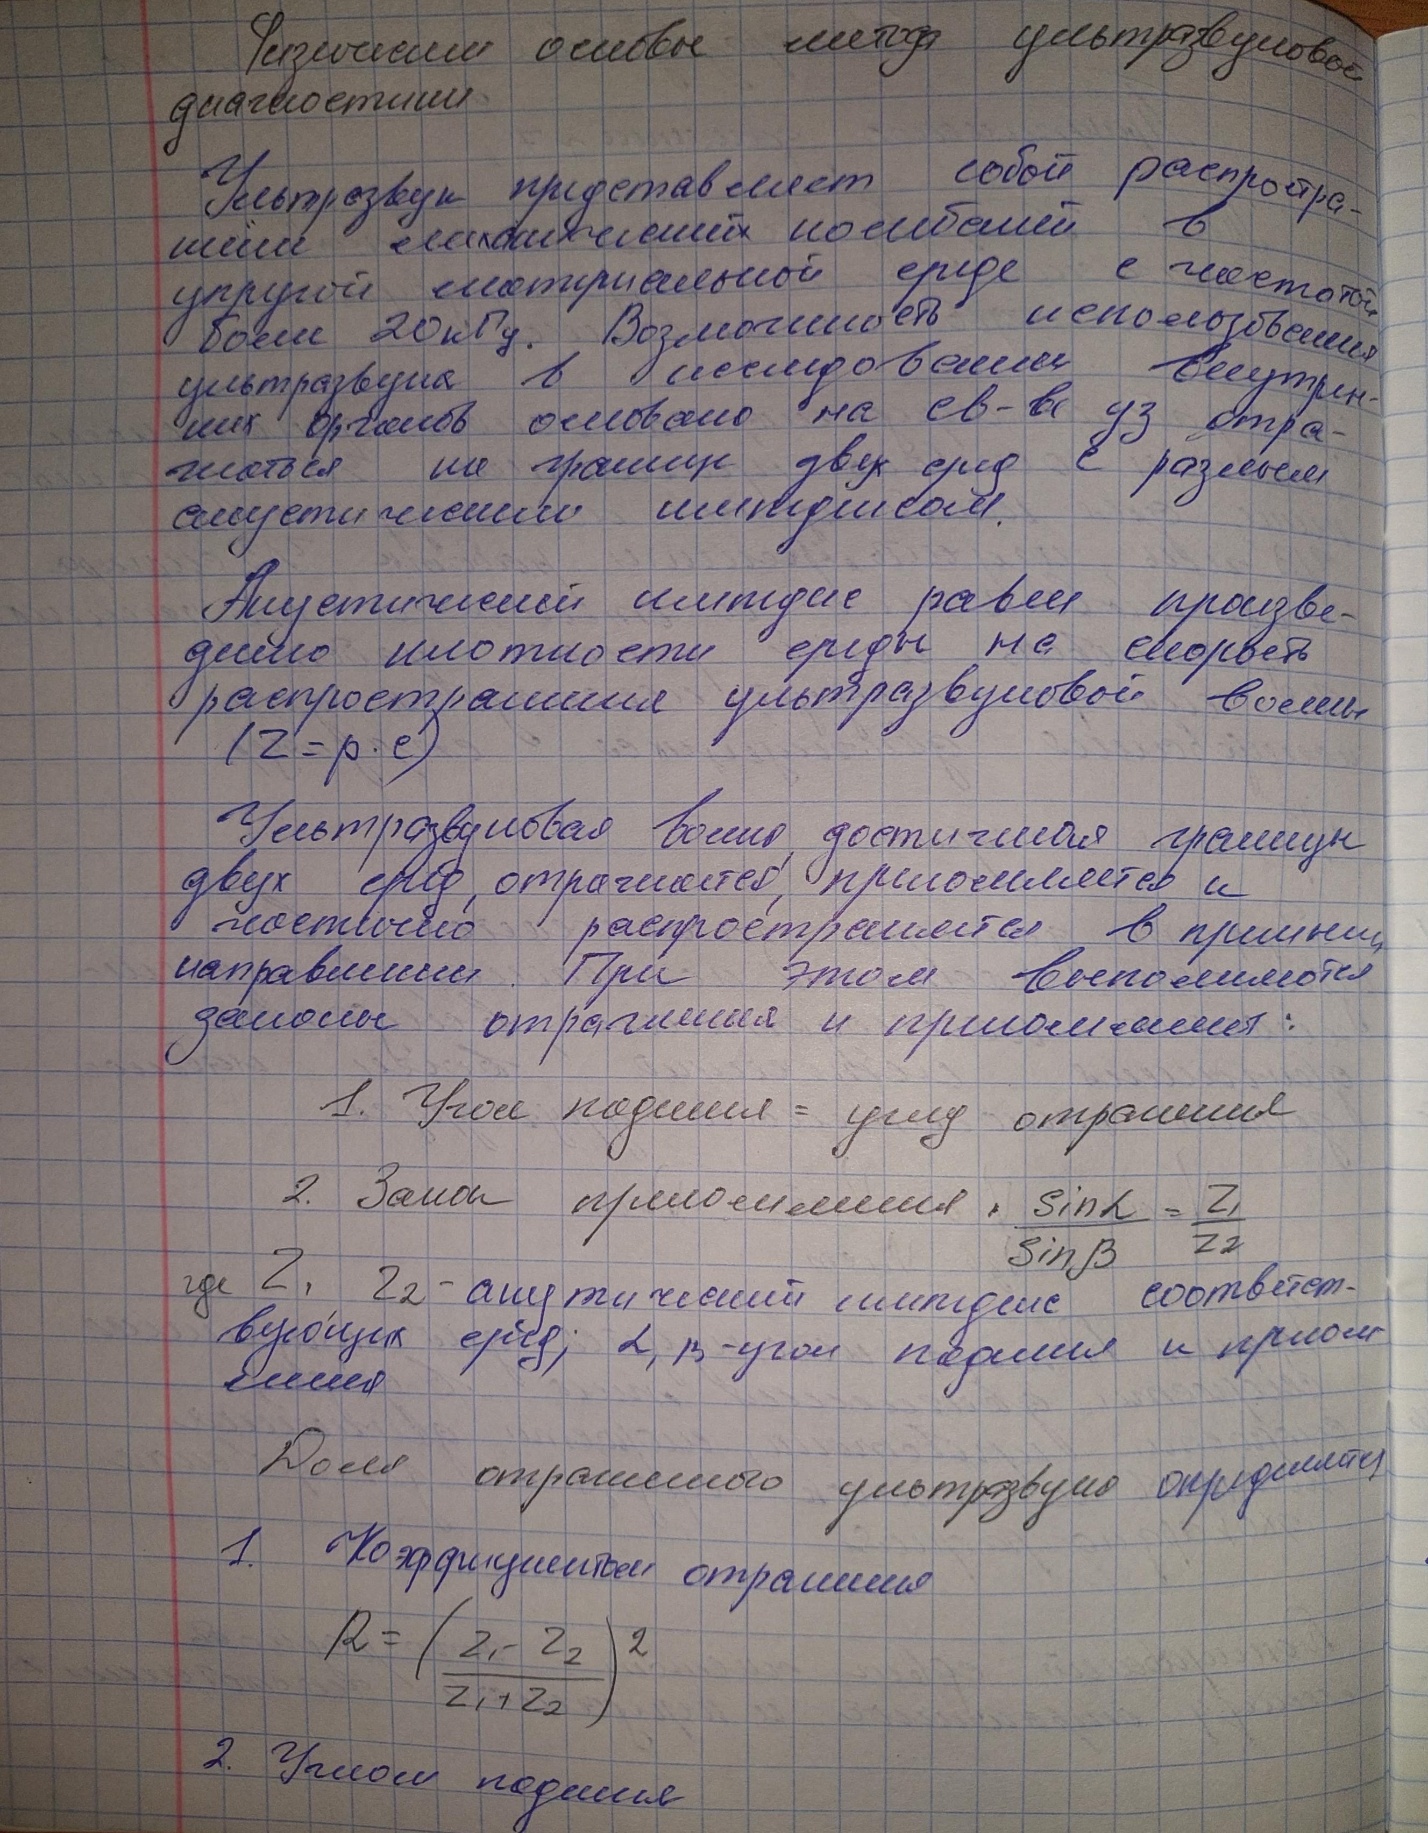 Физические основы метода ультразвуковой
диагностики
Ультразвук представляет собой распростра-
нение механических колебаний в
упругой материальной среде с частотой
более 20 кГц. Возможность использования
ультразвука в исследовании внутрен-
них органов основано на св-ве уз отра-
жаться на границе двух сред с разным
акустическим импедансом.
Акустический импеданс равен произве-
дению плотности среды на скорость
распространения ультразвуковой волны
(Z = ρ · c)
Ультразвуковая волна, достигшая границы
двух сред, отражается, преломляется и
частично распространяется в прежнем
направлении. При этом выполняются
законы отражения и преломления:
1. Угол падения = углу отражения
2. Закон преломления. sin α / sin β = Z1 / Z2
где Z1 Z2 - акустический импеданс соответст-
вующих сред; α, β - угол падения и прелом
ления
Доля отраженного ультразвука определяется
1. Коэффициентом отражения
R = ( (Z1 - Z2) / (Z1 + Z2) )²
2. Углом падения